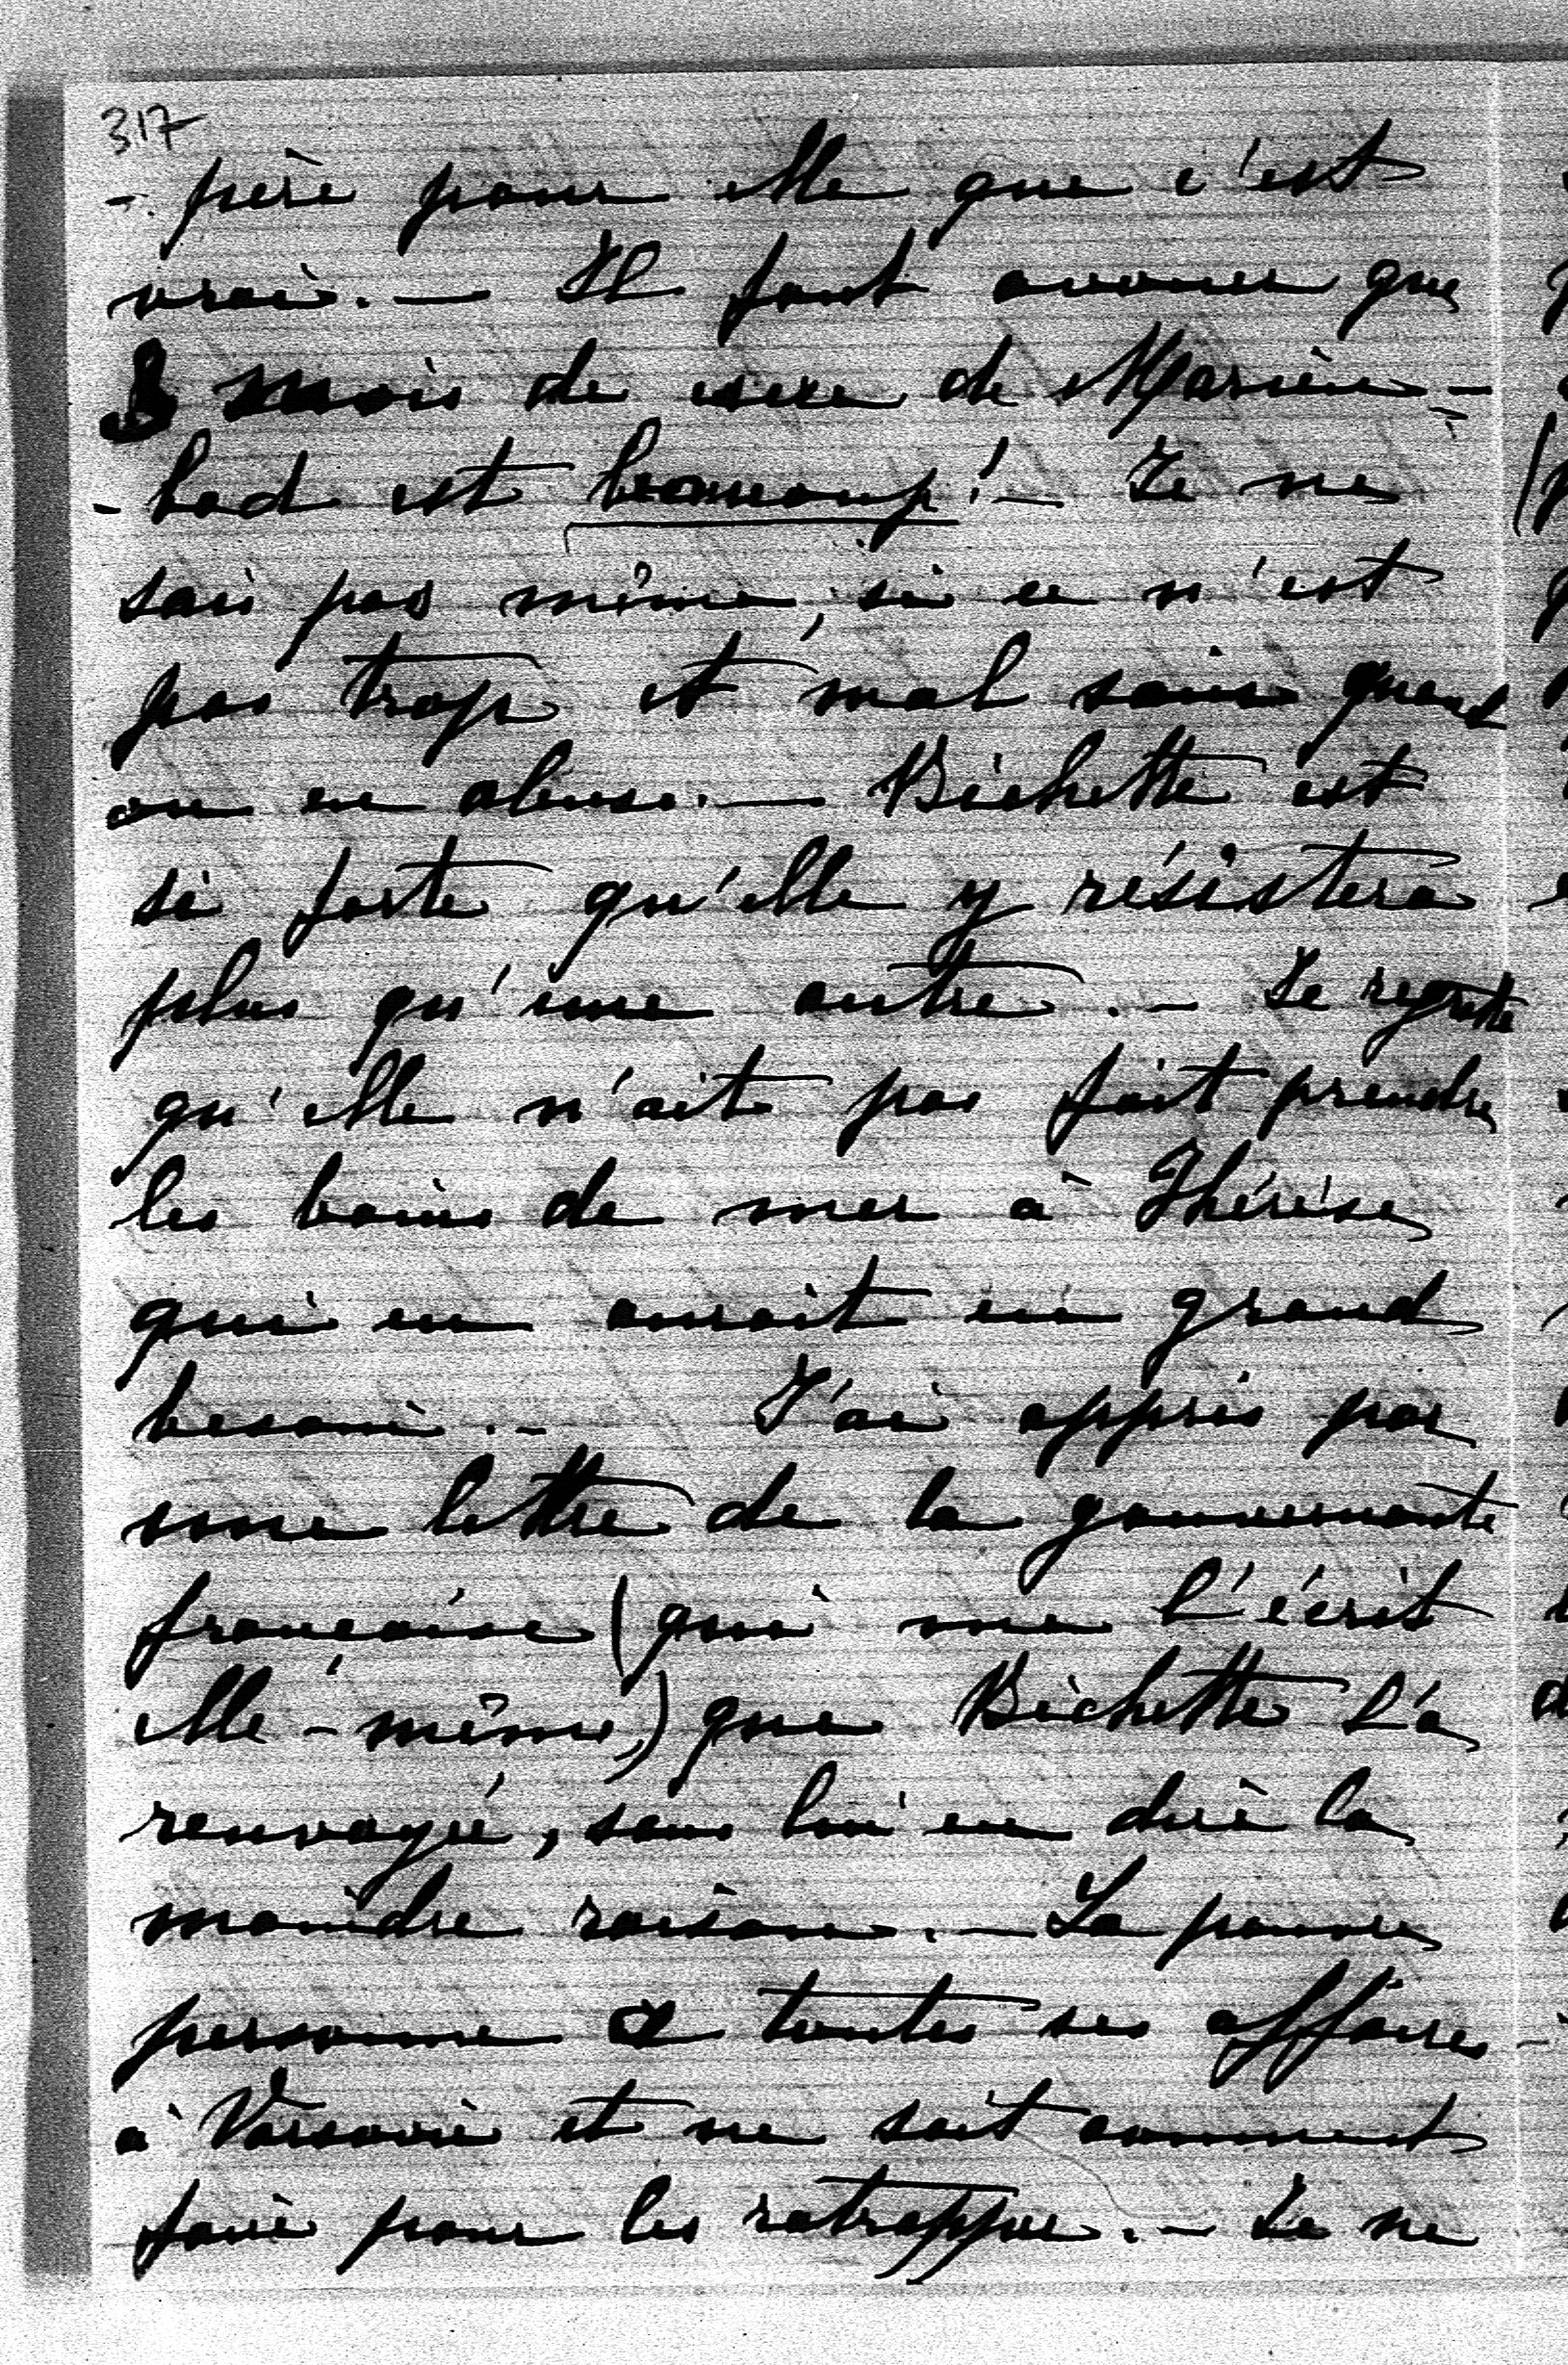 317
-père pour elle que c'est
vrai. — Il faut avouer que
3 mois de cure de Marien-
-bad est beaucoup! — Je ne
sais pas même, si ce n'est
pas trop et mal sain quand
on en abuse. — Bichette est
si forte qu'elle y résistera
plus qu'une autre. — Je regrette
qu'elle n'ait pas fait prendre
les bains de mer à Thérèse
qui en aurait un grand
besoin. — J'ai appris par
une lettre de la gouvernante
française (qui me l'écrit
elle-même,) que Bichette l'a
renvoyé, sans lui en dire la
moindre raison. — La pauvre
personne a toutes ses affaires
à Varsovie et ne sait comment
faire pour les ratrapper. — Je ne